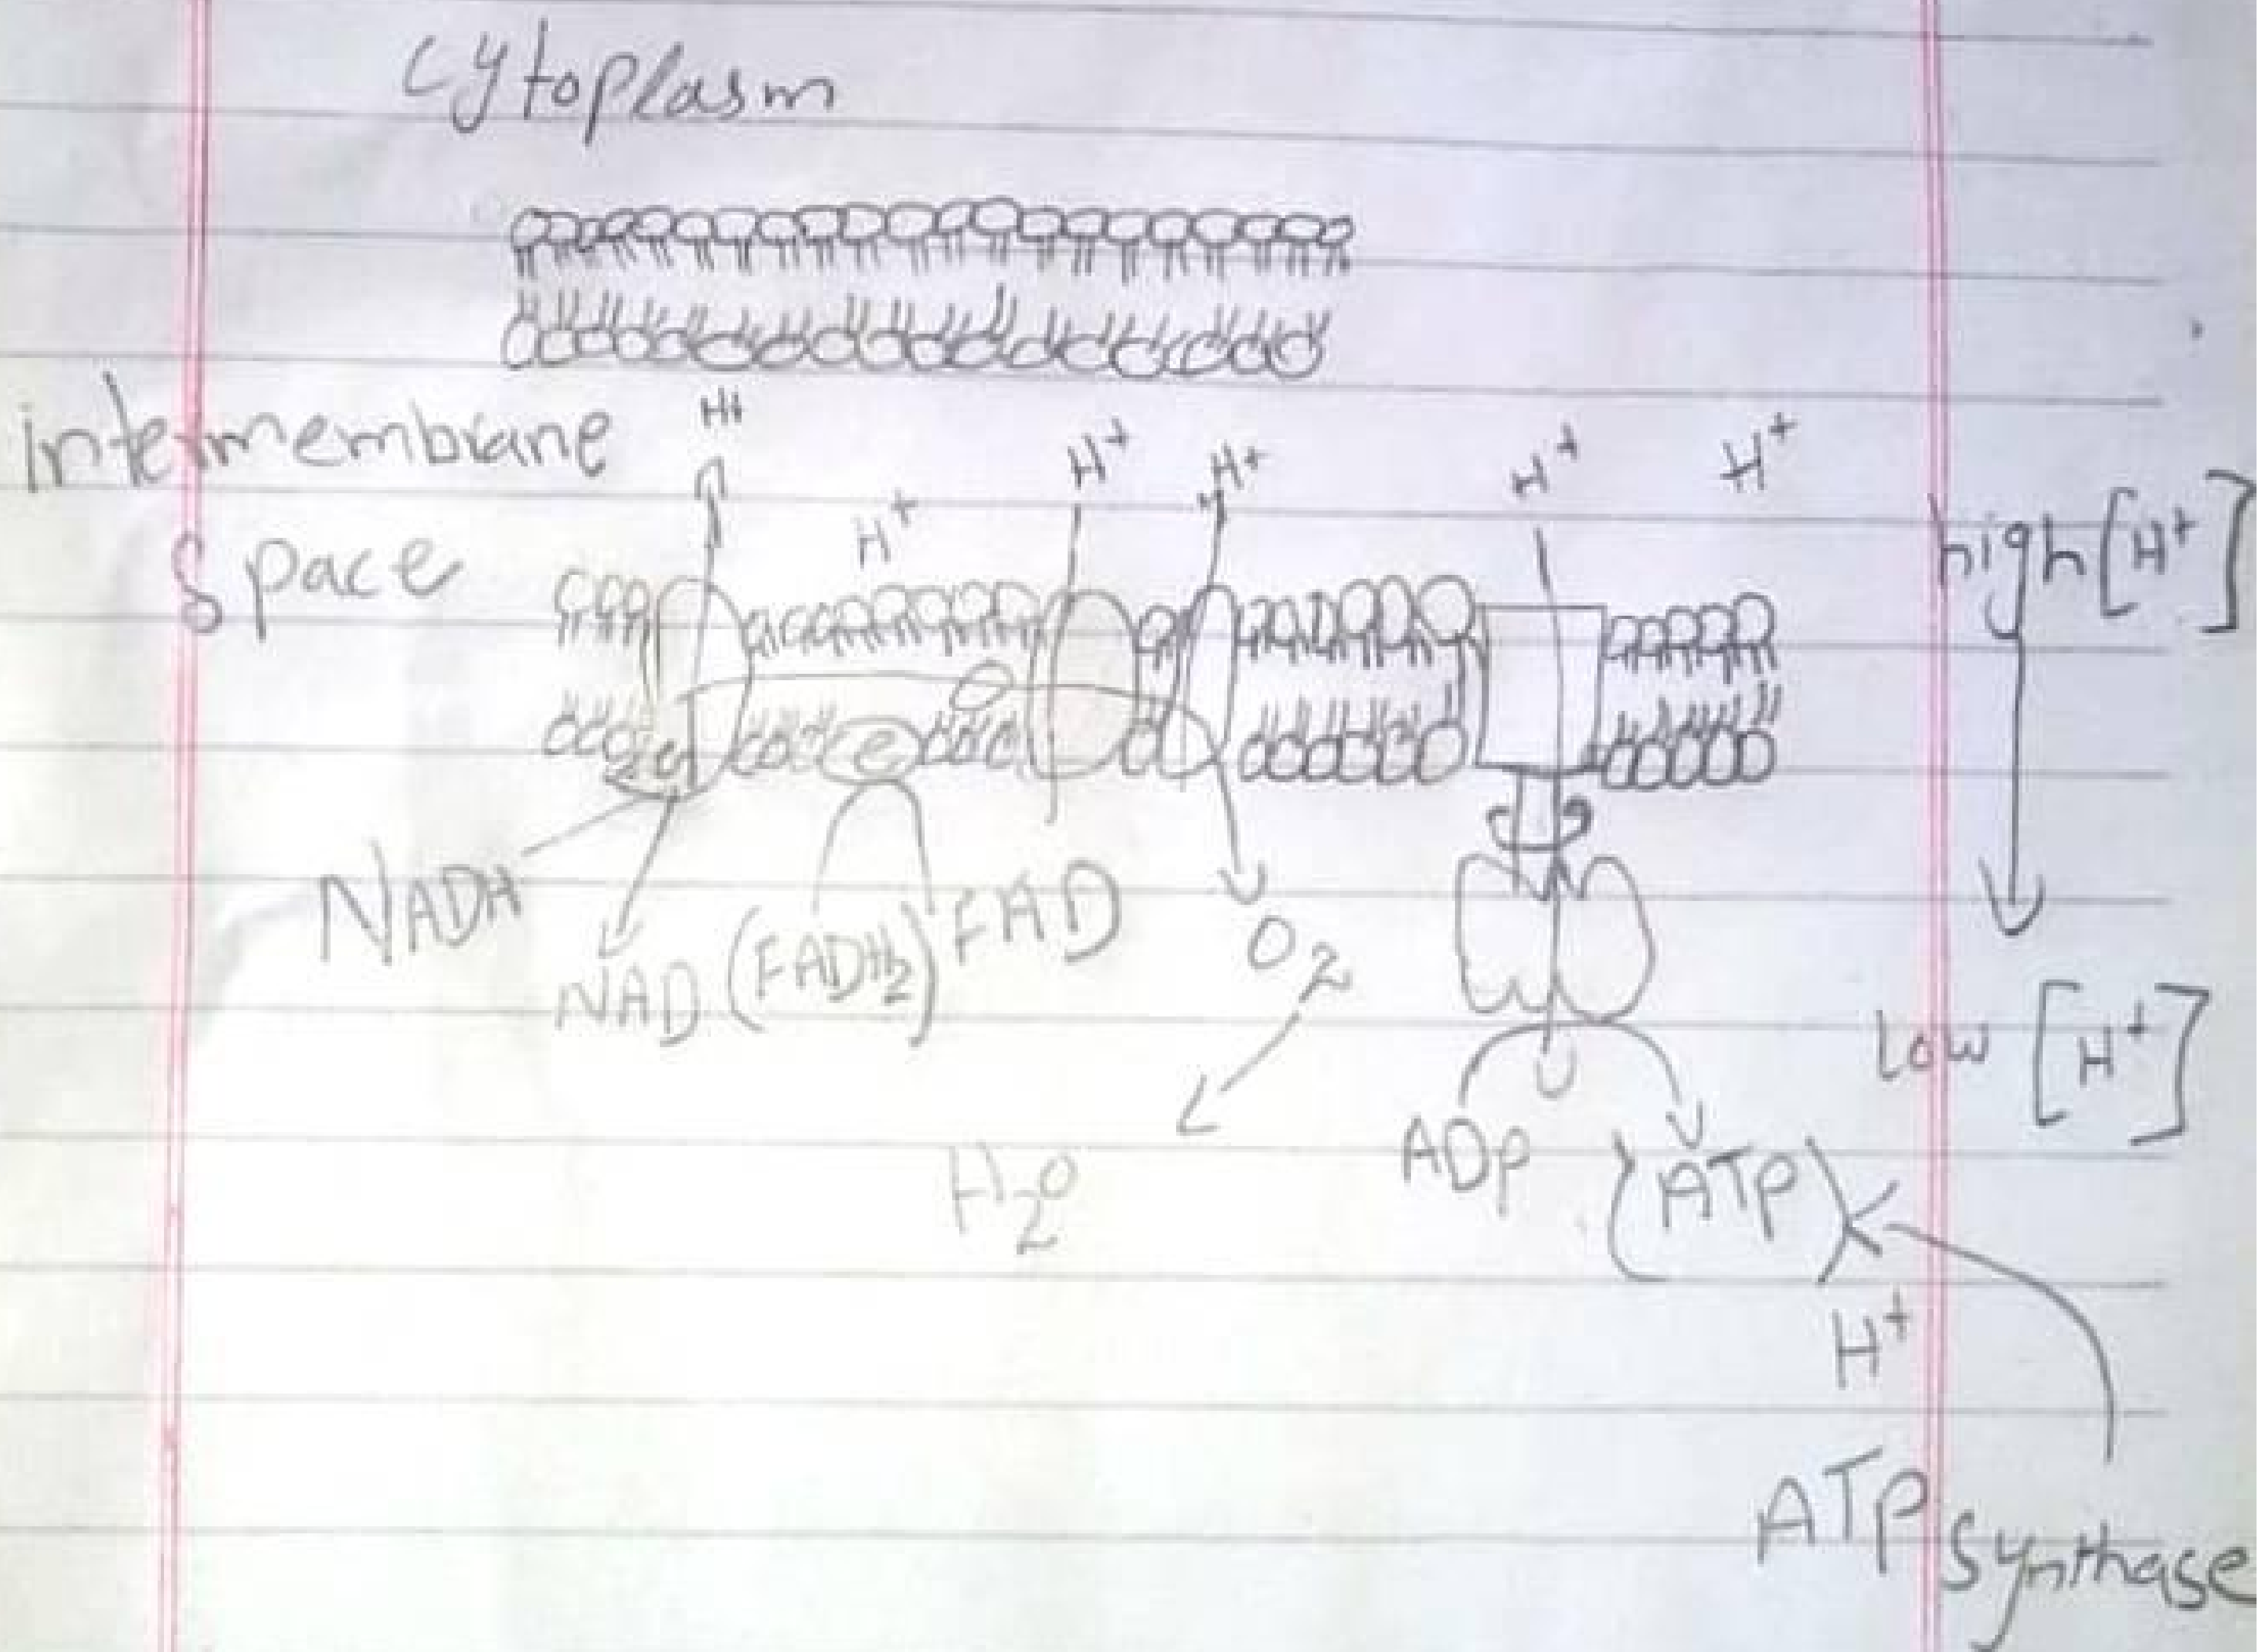 Cytoplasm
intermembrane
Space
H+
H+
H+
H+
H+
H+
high [H+]
e
NADH
NAD
(FADH2)
FAD
O2
low [H+]
H2O
ADP
(ATP)
H+
ATP synthase